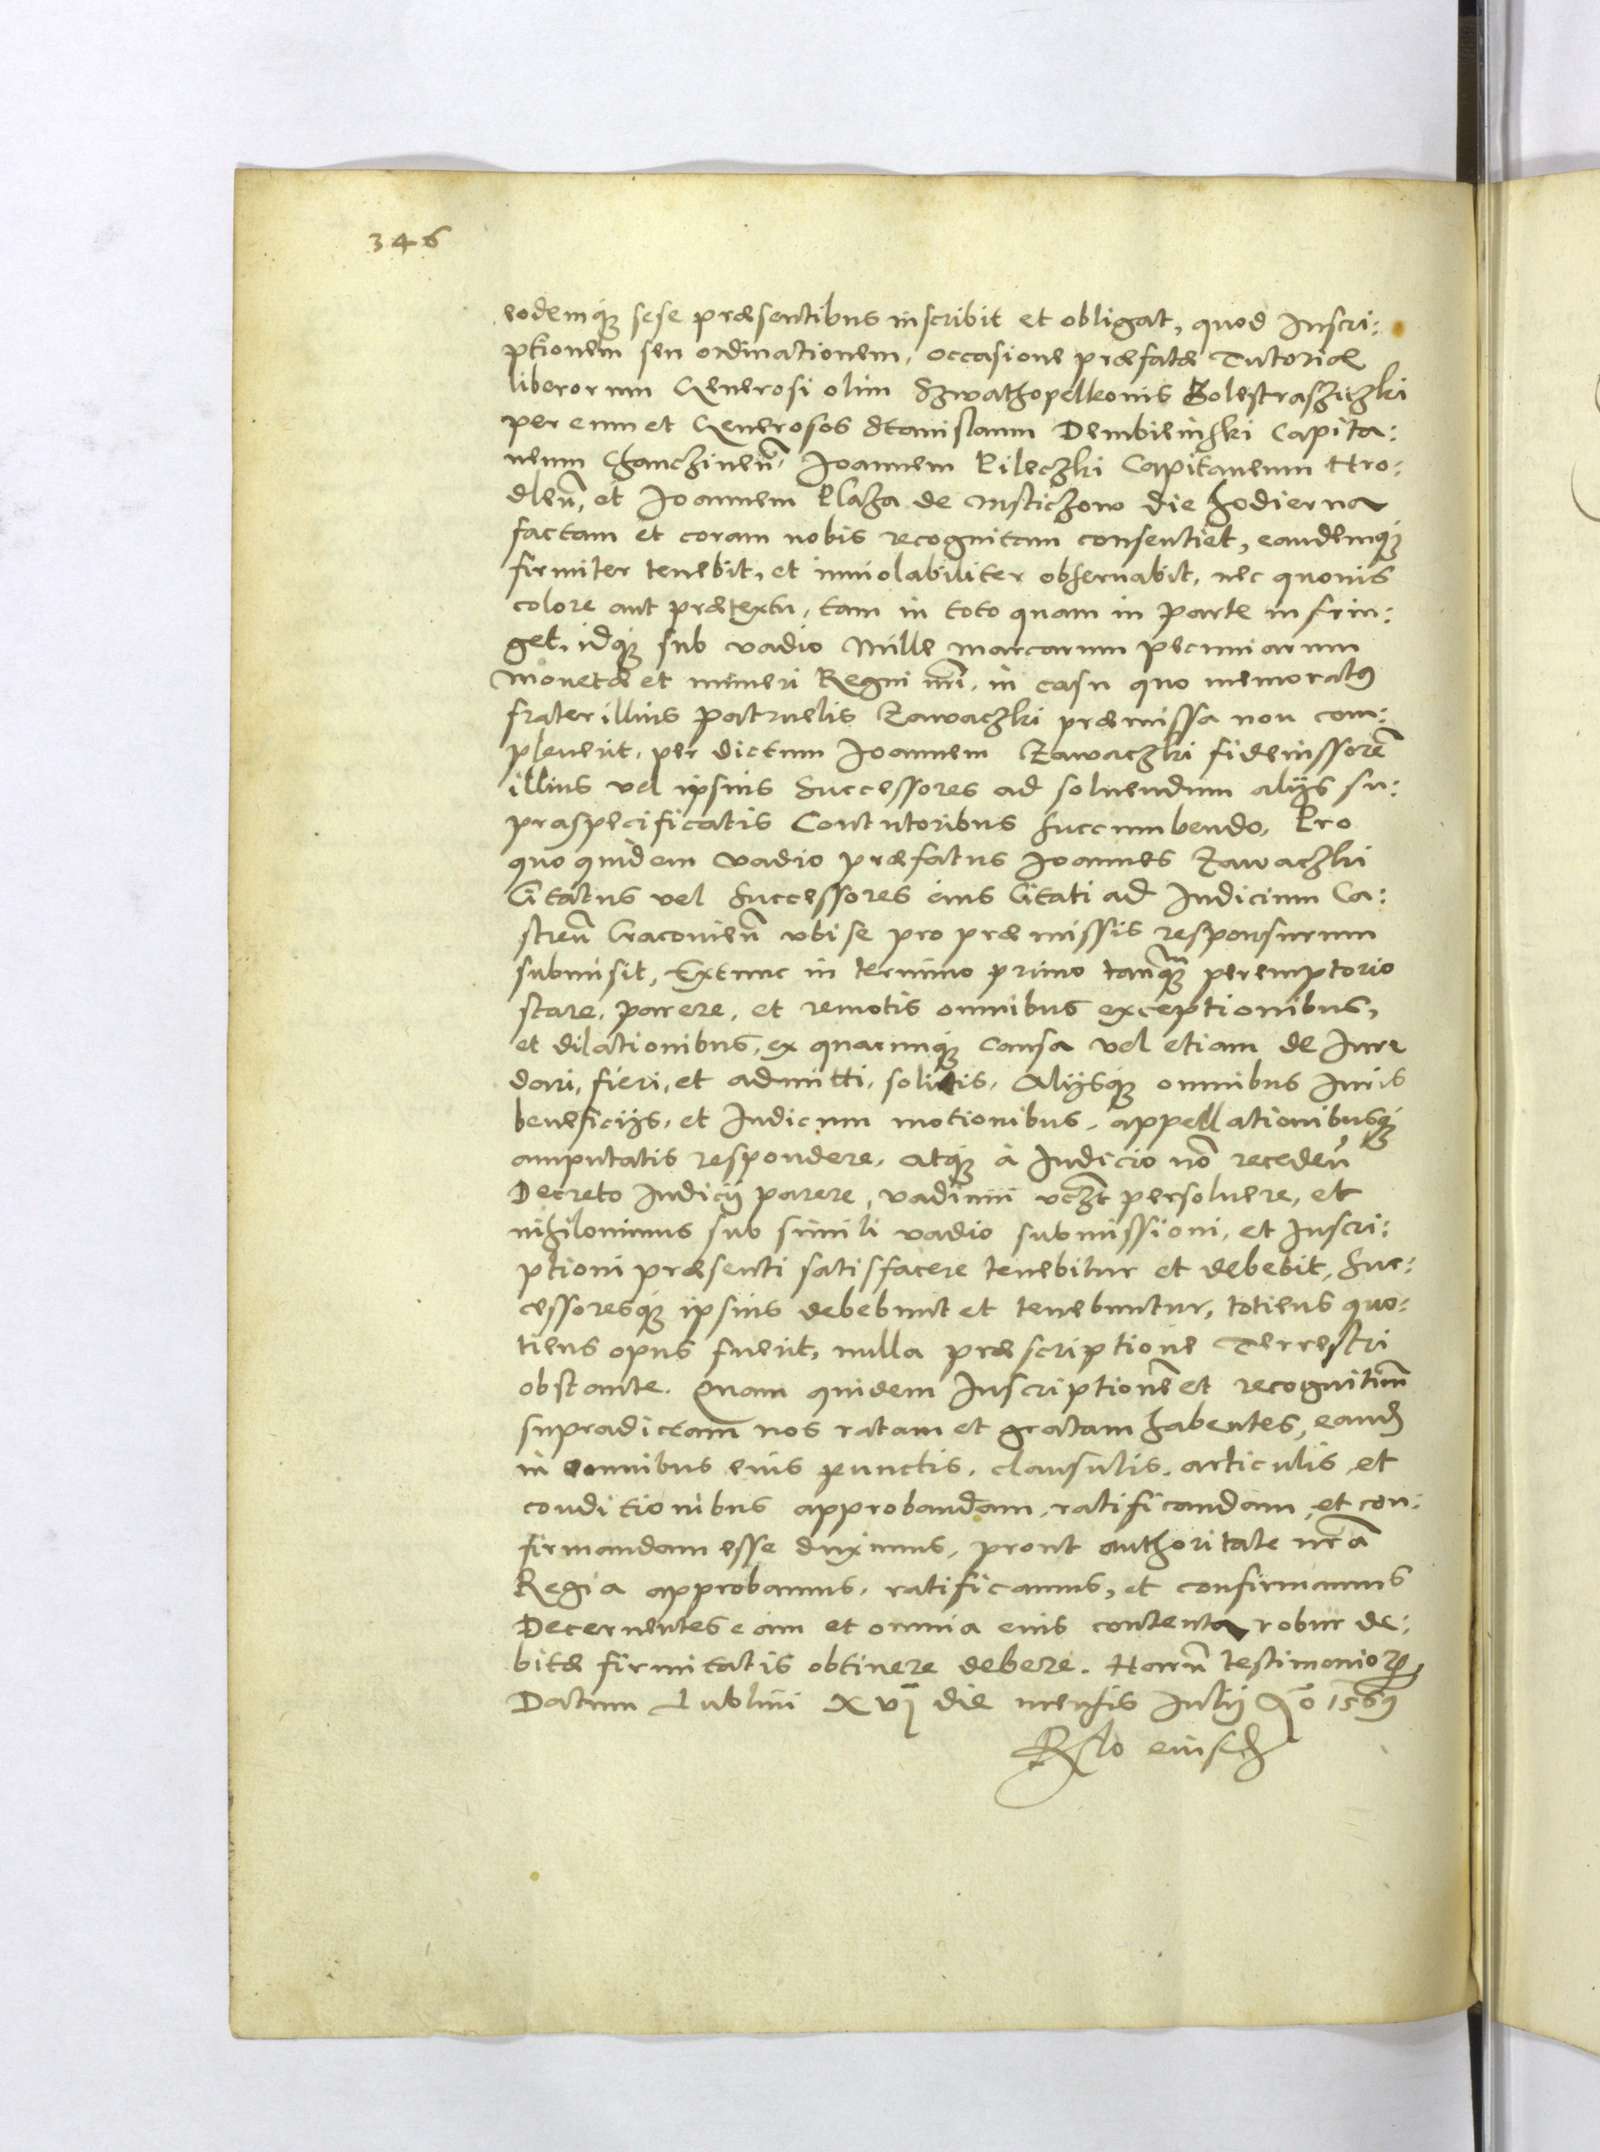 346
eodemq̃ sese præsentibus inscribit et obligat, quod Inscri:
ptionem seu ordinationem, occasione præfatæ Tutoriæ
liberorum Generosi olim Szwathopelkonis Bolestrasziczki
per eum et Generosos Stanislaum Dembieinski Capita:
neum Chanczinen̄, Joannem Pileczki Capitaneum Hro:
dlen̄, et Joannem Plaza de Msticzow die hodierna
factam et coram nobis recognitam consentiet, eandemq̃
firmiter tenebit, et inuiolabiliter obseruabit, nec quouis
colore aut prætextu, tam in toto quam in parte infrin:
get, idq̃ sub vadio Mille marcarum pecuniarum
Monetæ et numeri Regni nr̄i, in casu quo memoratus
frater illius patruelis Zawaczki præmissa non com:
pleuerit, per dictum Joannem Zawaczki fideiussorē
illius vel ipsius successores ad soluendum alijs su:
praspecificatis Contutoribus succumbendo, Pro
quo quidem vadio præfatus Joannes Zawaczki
Citatus vel successores eius Citati ad Iudicium Ca:
stren̄ Cracouien̄ vbi se pro præmissis responsurum
submisit, Extunc in termino primo tanq̃ peremptorio
stare, parere, et remotis omnibus exceptionibus,
et dilationibus, ex quacunq̃ causa vel etiam de Iure
dari, fieri, et admitti, solitis, Alijsq̃ omnibus Iuris
beneficijs, et Iudicum motionibus, appellationibusq̃
amputatis respondere, atq̃ à Iudicio nō receden̄
Decreto Iudicij parere, vadium vczt persoluere, et
nihilominus sub simili vadio submissioni, et Inscri:
ptioni præsenti satisfacere tenebitur et debebit, suc:
cessoresq̃ ipsius debebunt et tenebuntur, totiens quo:
tiens opus fuerit, nulla præscriptione Terrestri
obstante. Quam quidem Inscriptionē et recognitionē
supradictam nos ratam et gratam habentes, eand
in omnibus eius punctis, clausulis, articulis, et
conditionibus approbandam, ratificandam, et con:
firmandam esse duximus, prout authoritate nr̄a
Regia approbamus, ratificamus, et confirmamus
Decernentes eam et omnia eius contenta robur de:
bitæ firmitatis obtinere debere. Harū testimonio
Datum Lublini xvij die mensis Iulij Aō 1569